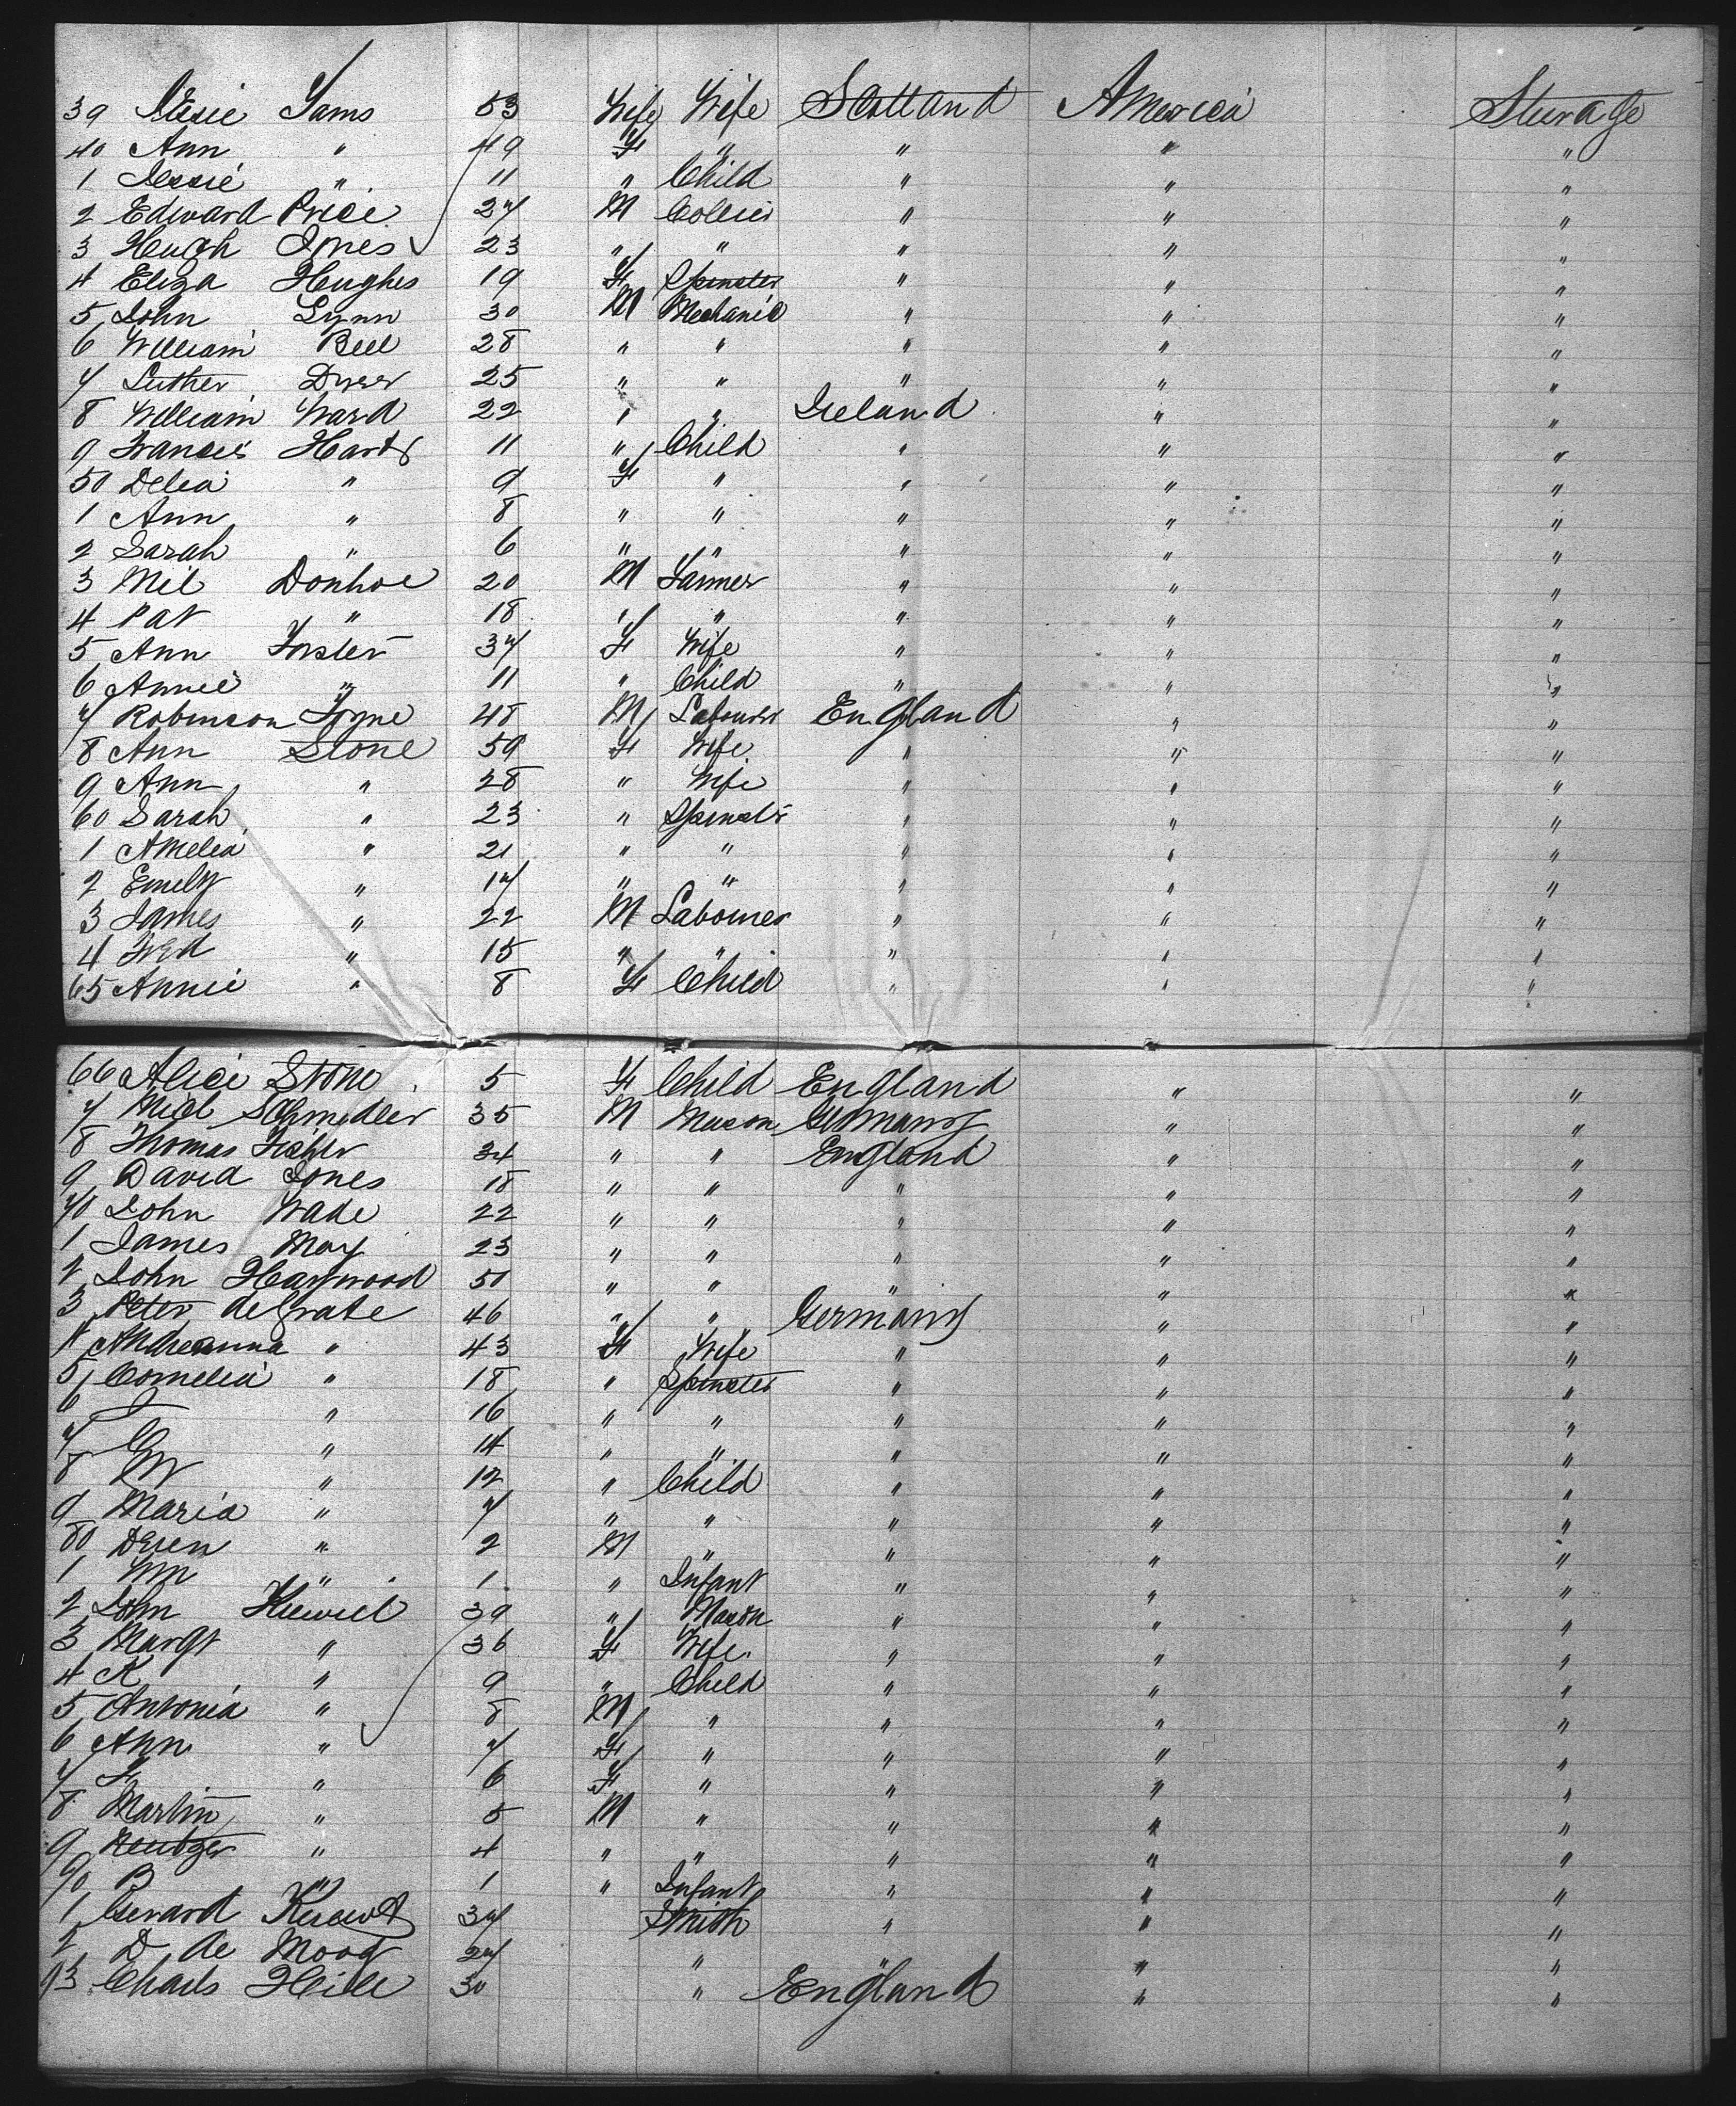 39 Jessie Sams 53 Wife Wife Scotland America Sterage
40 Ann " 49 F " " " "
1 Jessie " 11 " Child " " "
2 Edward Price 27 M Collier " " "
3 Hugh Jones 23 " " " " "
4 Eliza Hughes 19 F Spinster " " "
5 John Lynn 30 M Mechanic " " "
6 William Bell 28 " " " " "
7 Luther Dyer 25 " " " " "
8 William Ward 22 " " Ireland " "
9 Francis Harty 11 " Child " " "
50 Delia " 9 F " " " "
1 Ann " 8 " " " " "
2 Sarah " 6 " " " " "
3 Mil Donhoe 20 M Farmer " " "
4 Pat " 18 " " " " "
5 Ann Forster 37 F Wife " " "
6 Annie " 11 " Child " " "
7 Robinson Tyne 48 M Labourer England " "
8 Ann Stone 59 F Wife " " "
9 Ann " 28 " Wife " " "
60 Sarah " 23 " Spinster " " "
1 Amelia " 21 " " " " "
2 Emely " 17 " " " " "
3 James " 22 M Labourer " " "
4 Fred " 15 " " " " "
65 Annie " 8 F Child " " "
66 Alice Stone 5 F Child England " "
7 Micl Schmidler 35 M Mason Germany " "
8 Thomas Fisher 34 " " England " "
9 David Jones 18 " " " " "
70 John Wade 22 " " " " "
1 James May 23 " " " " "
2 John Haywood 50 " " " " "
3 Peter de Grate 46 " " Germany " "
4 Andreanna " 43 F Wife " " "
5 Cornelia " 18 " Spinster " " "
6 " 16 " " " " "
7 " 14 " " " " "
8 W " 12 " Child " " "
9 Maria " 7 " " " " "
80 " 2 M " " " "
1 Wm " 1 " Infant " " "
2 John Kiewiel 39 " Mason " " "
3 Margt " 36 F Wife " " "
4 K " 9 " Child " " "
5 Antonia " 8 M " " " "
6 Ann " 7 F " " " "
7 F " 6 F " " " "
8 Martin " 5 M " " " "
9 " 4 " " " " "
90 B " 1 " Infant " " "
1 Gerard 37 Smith " " "
2 D. de Mooy 27 " " " "
93 Charls Hill 30 " England " "